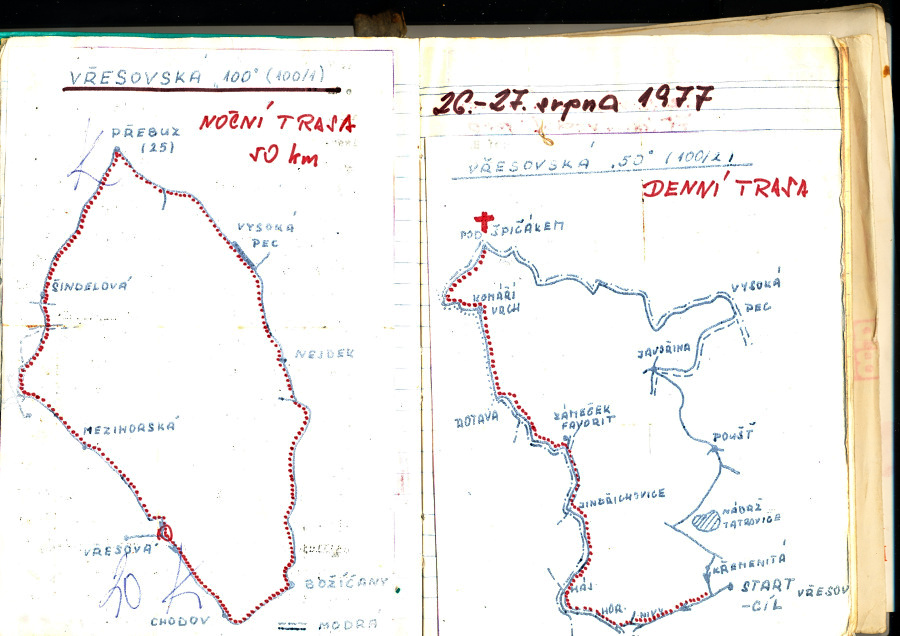 VŘESOVSKÁ „100" (100/1)
NOČNÍ TRASA
50 km
PŘEBUZ
(25)
VYSOKÁ
PEC
ŠINDELOVÁ
NEJDEK
MEZIHORSKÁ
VŘESOVÁ
BOŽÍČANY
CHODOV
MODRÁ
26.-27. srpna 1977
VŘESOVSKÁ „50" (100/2)
DENNÍ TRASA
POD ŠPIČÁKEM
KOMÁŘÍ
VRCH
VYSOKÁ
PEC
JAVOŘINA
ROTAVA
ZÁMEČEK
FAVORIT
POUŠŤ
JINDŘICHOVICE
NÁDRŽ
TATROVICE
KŘEMENITÁ
HÁJ
START
-CÍL
VŘESOV
HOR. NIVY